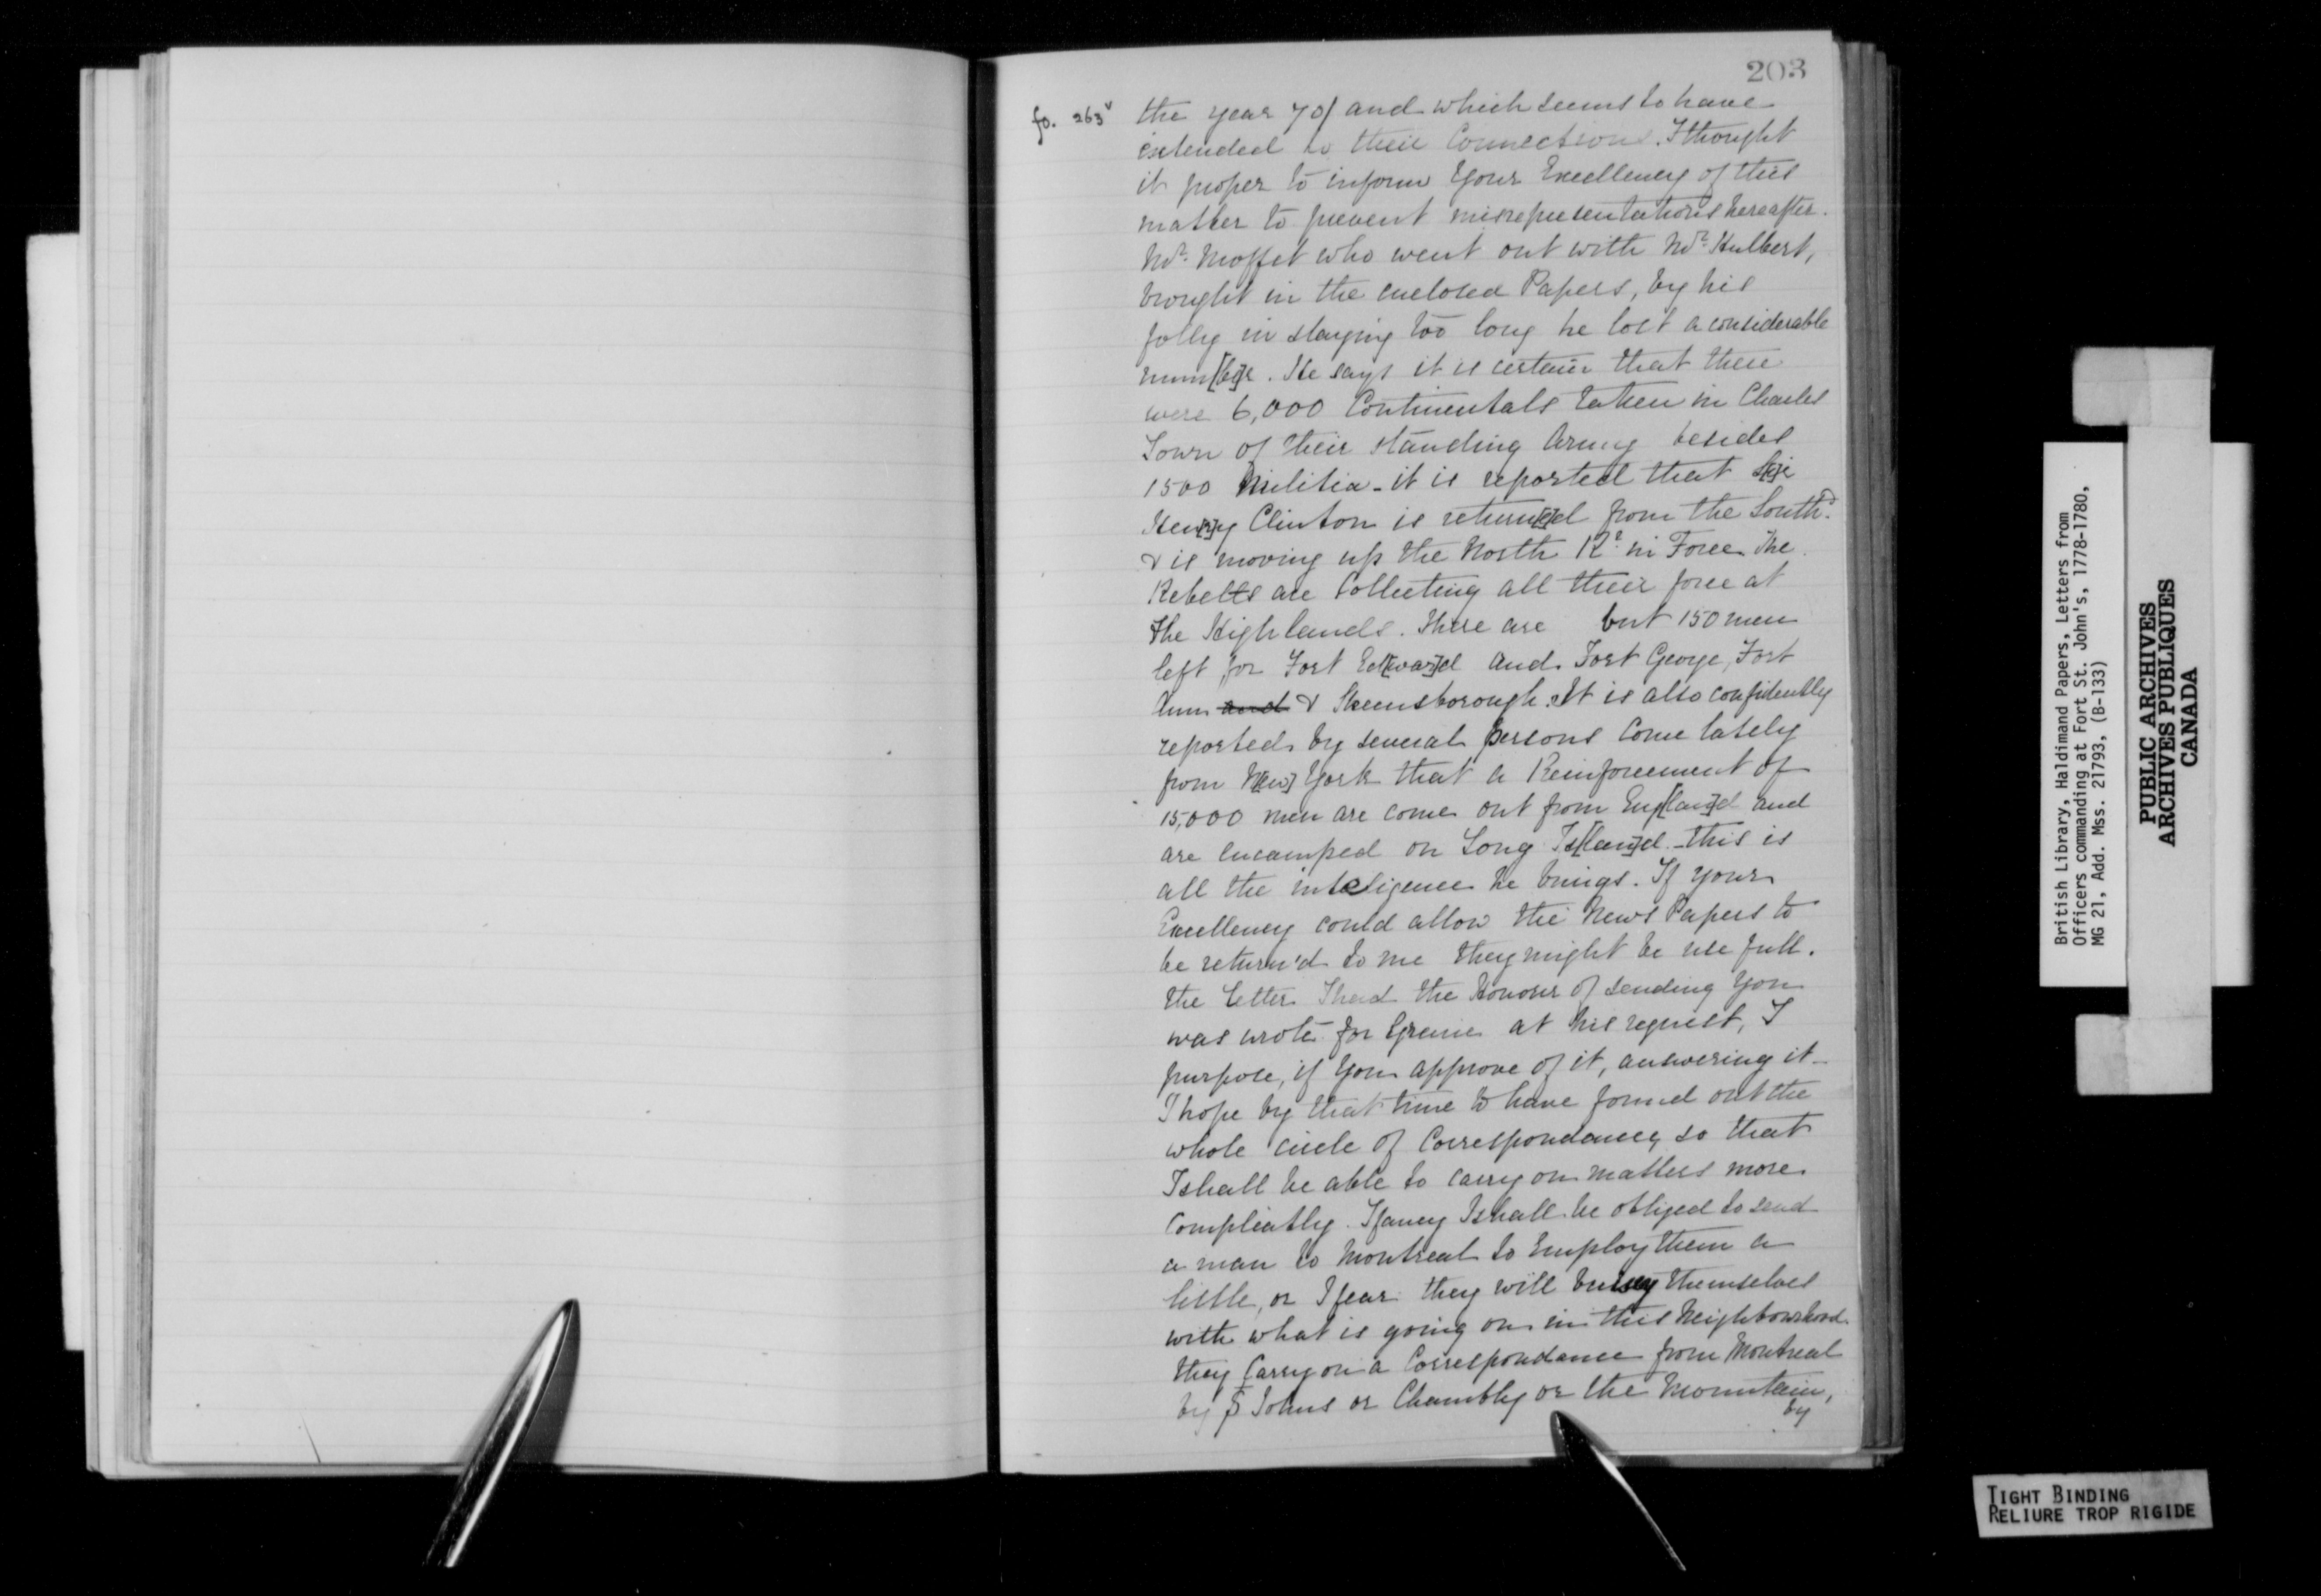 203
fo. 263v the year 70/ and which seems to have
extended to their Connections. I thought
it proper to inform Your Excellency of this
matter to prevent misrepresentations hereafter.
Mr. Moffet who went out with Mr. Hulbert,
brought in the enclosed Papers, by his
folly in staying too long he lost a considerable
num[be]r. He says it is certain that there
were 6,000 Continentals taken in Charles
Town of their standing Army besides
1500 Militia - it is reported that S[i]r
Hen[r]y Clinton is return[e]d from the Southd.
& is moving up the North Rr. in Force. The
Rebells are Collecting all their force at
the Highlands. There are but 150 men
left for Fort Ed[war]d and Fort George, Fort
Ann and & Skeensborough. It is also confidently
reported by several persons Come lately
from N[ew] York that a Reinforcement of
15,000 men are come out from Eng[lan]d and
are encamped on Long Is[lan]d - this is
all the inteligence he brings. If your
Excellency could allow the News Papers to
be return'd to me they might be use full.
the Letter I had the Honour of sending You
was wrote for at his request, I
purpose, if You approve of it, answering it -
I hope by that time to have found out the
whole circle of Correspondance, so that
I shall be able to carry on matters more
Compleatly. I fancy I shall be obliged to send
a man to Montreal to Employ them a
little, or I fear they will themselves
with what is going on in this Neighbourhood.
they Carry on a Correspondance from Montreal
by S Johns or Chambly or the Mountain,
by
British Library, Haldimand Papers, Letters from
Officers commanding at Fort St. John's, 1778-1780,
MG 21, Add. Mss. 21793, (B-133)
PUBLIC ARCHIVES
ARCHIVES PUBLIQUES
CANADA
TIGHT BINDING
RELIURE TROP RIGIDE